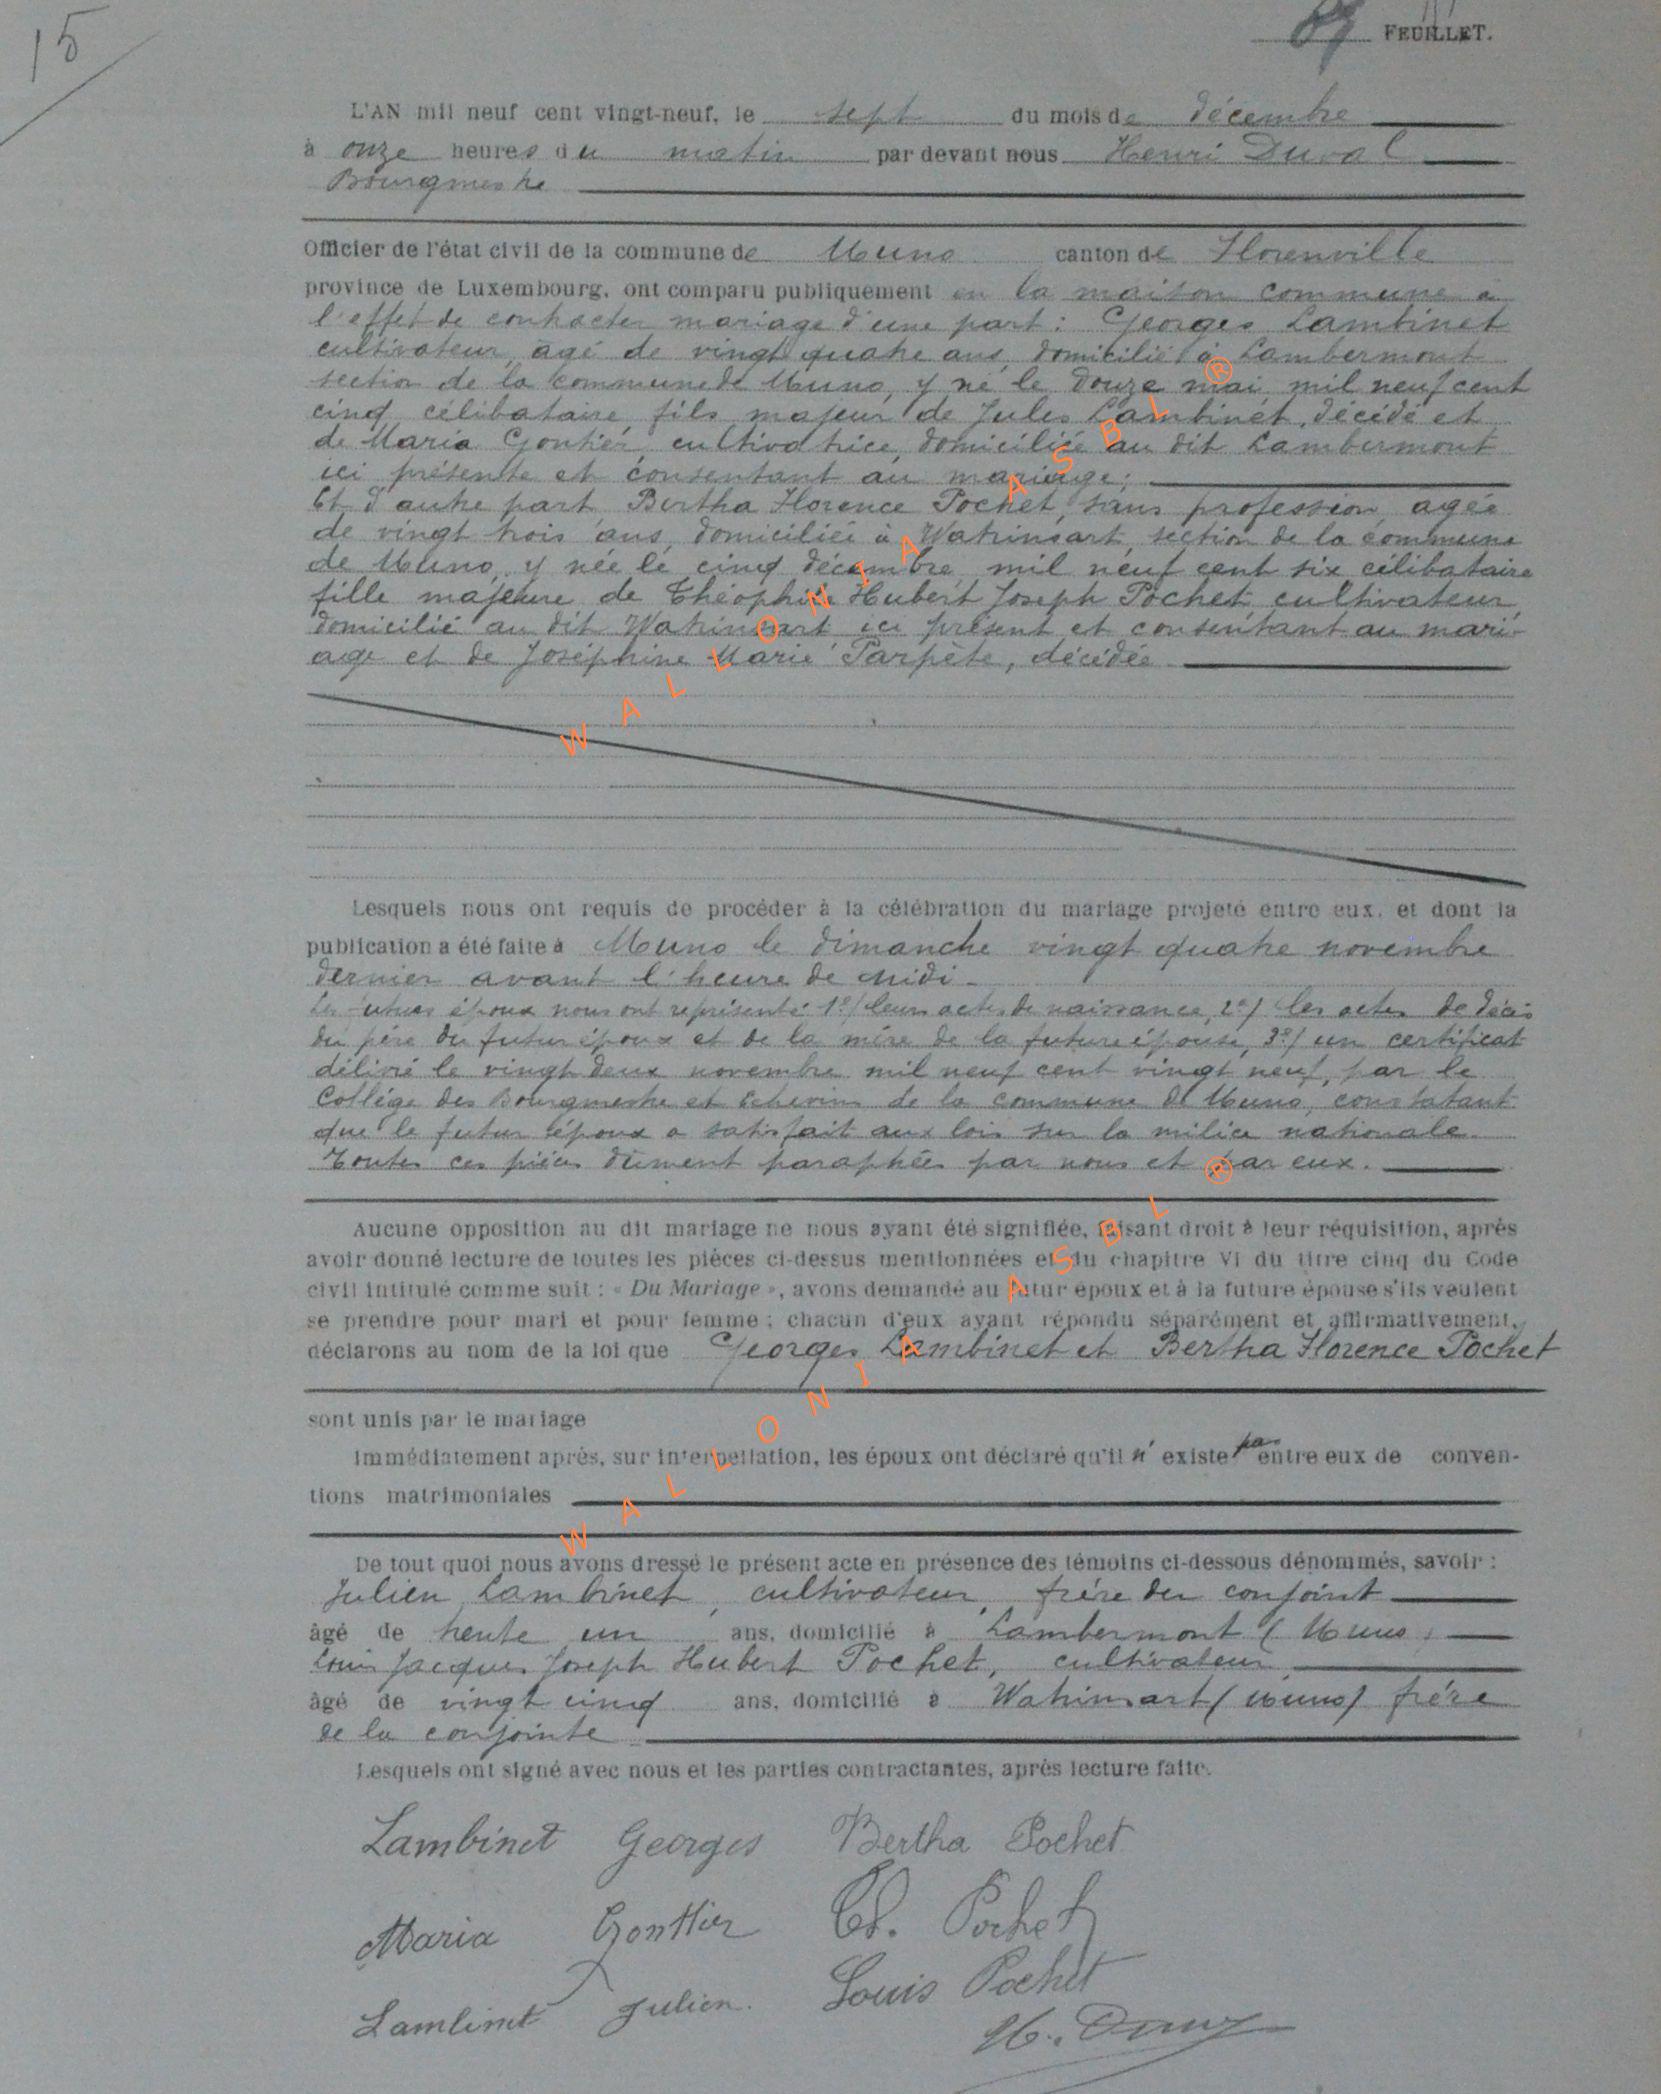 15
89 FEUILLET.
L'AN mil neuf cent vingt-neuf, le sept du mois de décembre
à onze heures du matin par devant nous Henri Duval
Bourgmestre
Officier de l'état civil de la commune de Muno canton de Florenville
province de Luxembourg, ont comparu publiquement en la maison commune à
l'effet de contracter mariage d'une part : Georges Lambinet
cultivateur, âgé de vingt quatre ans, domicilié à Lambermont
section de la commune de Muno, y né le douze mai mil neuf cent
cinq célibataire fils majeur de Jules Lambinet, décédé et
de Maria Gontier, cultivatrice, domiciliée au dit Lambermont
ici présente et consentant au mariage ;
Et d'autre part Bertha Florence Pochet, sans profession, agée
de vingt trois ans, domiciliée à Watrinsart, section de la commune
de Muno, y née le cinq décembre mil neuf cent six célibataire
fille majeure de Théophile Hubert Joseph Pochet, cultivateur,
domicilié au dit Watrinsart ici présent et consentant au mari-
age et de Joséphine Marie Parpète, décédée
Lesquels nous ont requis de procéder à la célébration du mariage projeté entre eux, et dont la
publication a été faite à Muno le dimanche vingt quatre novembre
dernier avant l'heure de midi -
Les futurs époux nous ont représenté 1°/ leurs actes de naissance, 2°/ les actes de décès
du père du futur époux et de la mère de la future épouse, 3°/ un certificat
délivré le vingt deux novembre mil neuf cent vingt neuf, par le
Collège des Bourgmestre et Echevins de la commune de Muno, constatant
que le futur époux a satisfait aux lois sur la milice nationale.
Toutes ces pièces dûment paraphées par nous et par eux.
Aucune opposition au dit mariage ne nous ayant été signifiée, faisant droit à leur réquisition, après
avoir donné lecture de toutes les pièces ci-dessus mentionnées et du chapitre VI du titre cinq du Code
civil intitulé comme suit : « Du Mariage », avons demandé au futur époux et à la future épouse s'ils veulent
se prendre pour mari et pour femme ; chacun d'eux ayant répondu séparément et affirmativement,
déclarons au nom de la loi que Georges Lambinet et Bertha Florence Pochet
sont unis par le mariage
Immédiatement après, sur interpellation, les époux ont déclaré qu'il n'existe pas entre eux de conven-
tions matrimoniales
De tout quoi nous avons dressé le présent acte en présence des témoins ci-dessous dénommés, savoir :
Julien Lambinet, cultivateur, frère du conjoint
âgé de trente un ans, domicilié à Lambermont (Muno)
Louis Jacques Joseph Hubert Pochet, cultivateur
âgé de vingt cinq ans, domicilié à Watrinsart (Muno) frère
de la conjointe
Lesquels ont signé avec nous et les parties contractantes, après lecture faite.
Lambinet Georges Bertha Pochet
Maria Gonttier Th. Pochet
Lambinet Julien. Louis Pochet
H. Duval
WALLONIA ASBL ®
WALLONIA ASBL ®